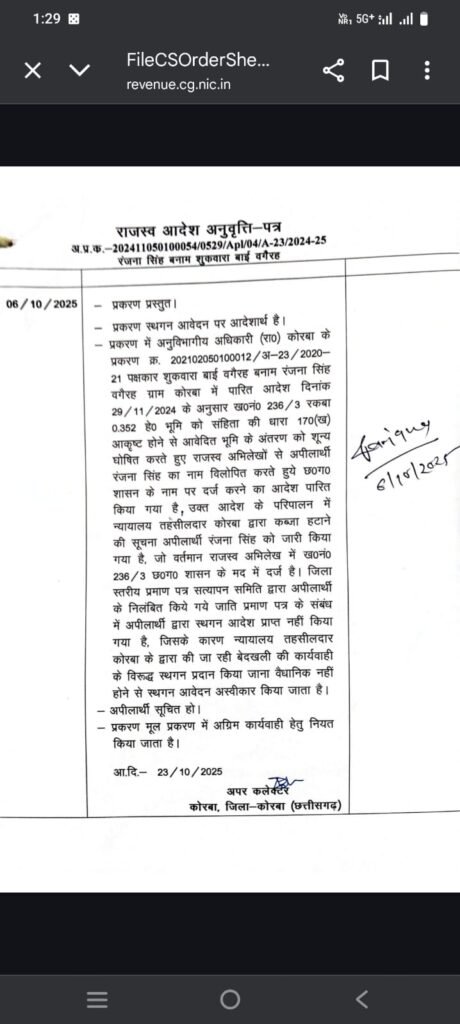 1:29
Vo NR1 5G+
FileCSOrderShe...
revenue.cg.nic.in
राजस्व आदेश अनुवृत्ति–पत्र
अ.प्र.क.–202411050100054/0529/Apl/04/A-23/2024-25
रंजना सिंह बनाम शुकवारा बाई वगैरह
06/10/2025
– प्रकरण प्रस्तुत।
– प्रकरण स्थगन आवेदन पर आदेशार्थ है।
– प्रकरण में अनुविभागीय अधिकारी (रा०) कोरबा के
प्रकरण क्र. 202102050100012/अ–23/2020–
21 पक्षकार शुकवारा बाई वगैरह बनाम रंजना सिंह
वगैरह ग्राम कोरबा में पारित आदेश दिनांक
29/11/2024 के अनुसार ख०नं० 236/3 रकबा
0.352 हे० भूमि को संहिता की धारा 170(ख)
आकृष्ट होने से आवेदित भूमि के अंतरण को शून्य
घोषित करते हुए राजस्व अभिलेखों से अपीलार्थी
रंजना सिंह का नाम विलोपित करते हुये छ०ग०
शासन के नाम पर दर्ज करने का आदेश पारित
किया गया है, उक्त आदेश के परिपालन में
न्यायालय तहसीलदार कोरबा द्वारा कब्जा हटाने
की सूचना अपीलार्थी रंजना सिंह को जारी किया
गया है, जो वर्तमान राजस्व अभिलेख में ख०नं०
236/3 छ०ग० शासन के मद में दर्ज है। जिला
स्तरीय प्रमाण पत्र सत्यापन समिति द्वारा अपीलार्थी
के निलंबित किये गये जाति प्रमाण पत्र के संबंध
में अपीलार्थी द्वारा स्थगन आदेश प्राप्त नहीं किया
गया है, जिसके कारण न्यायालय तहसीलदार
कोरबा के द्वारा की जा रही बेदखली की कार्यवाही
के विरूद्ध स्थगन प्रदान किया जाना वैधानिक नहीं
होने से स्थगन आवेदन अस्वीकार किया जाता है।
– अपीलार्थी सूचित हो।
– प्रकरण मूल प्रकरण में अग्रिम कार्यवाही हेतु नियत
किया जाता है।
आ.दि.– 23/10/2025
अपर कलेक्टर
कोरबा, जिला–कोरबा (छत्तीसगढ़)
6/10/2025